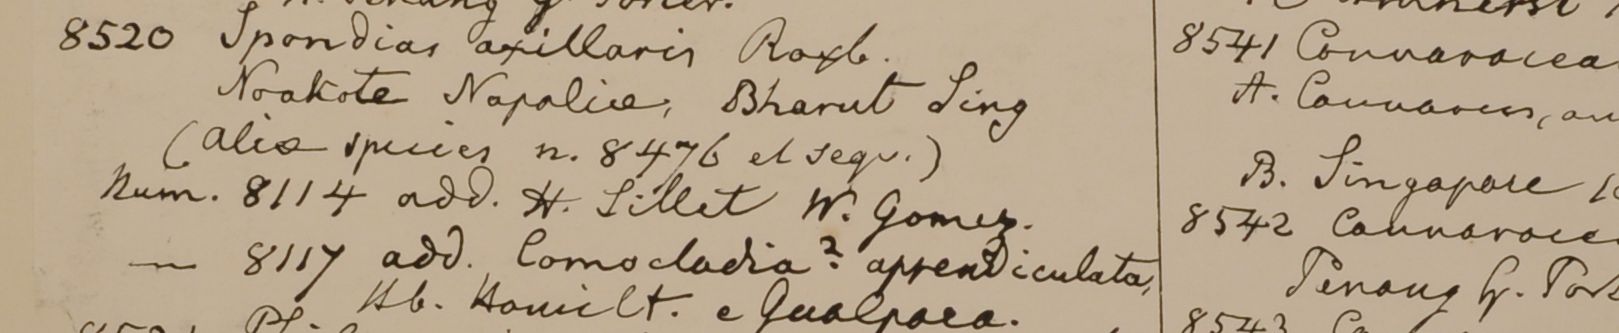 8520 Spondias axillaris Roxb.
Noakote Napaliae, Bharut Sing
(alia species n. 8476 et sequ.)
Num. 8114 add. H. Sillet W. Gomez.
— 8117 add. Comocladia? appendiculata,
Hb. Hamilt. e Gualpara.
8541 Connaracea
A. Connarus,
B. Singapore
8542 Connaracea
Penang G. Por
8543